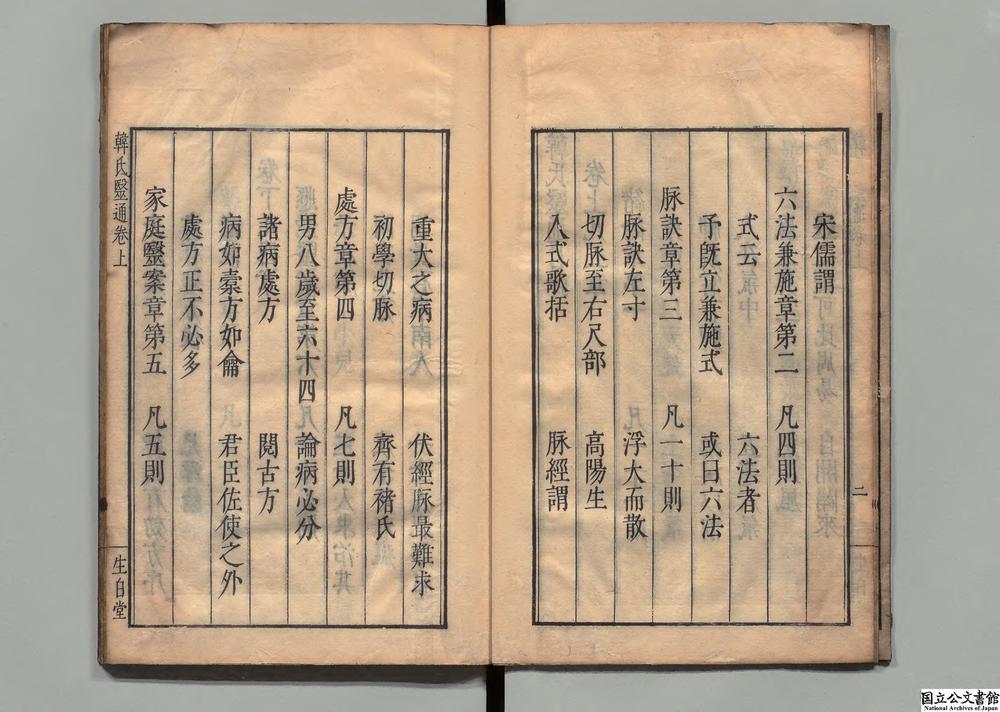 宋儒謂
六法兼施章第二　凡四則
式云　六法者
予旣立兼施式　或曰六法
脉訣章第三　凡一十則
脉訣左寸　浮大而散
切脉至右尺部　高陽生
入式歌括　脉經謂
二
重大之病　伏經脉最難求
初學切脉　齊有褚氏
處方章第四　凡七則
男八歲至六十四　論病必分
諸病處方　閱古方
病如橐方如龠　君臣佐使之外
處方正不必多
家庭醫案章第五　凡五則
韓氏醫通卷上
生白堂
国立公文書館
National Archives of Japan